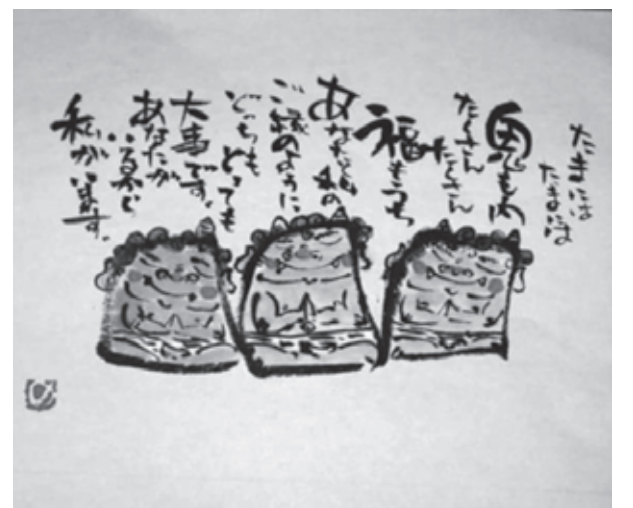 たまには
たまには
鬼も内
たくさん
たくさん
福もうち
あなたと私の
ご縁のように
どっちも
とっても
大事です。
あなたが
いるから
私がいます。